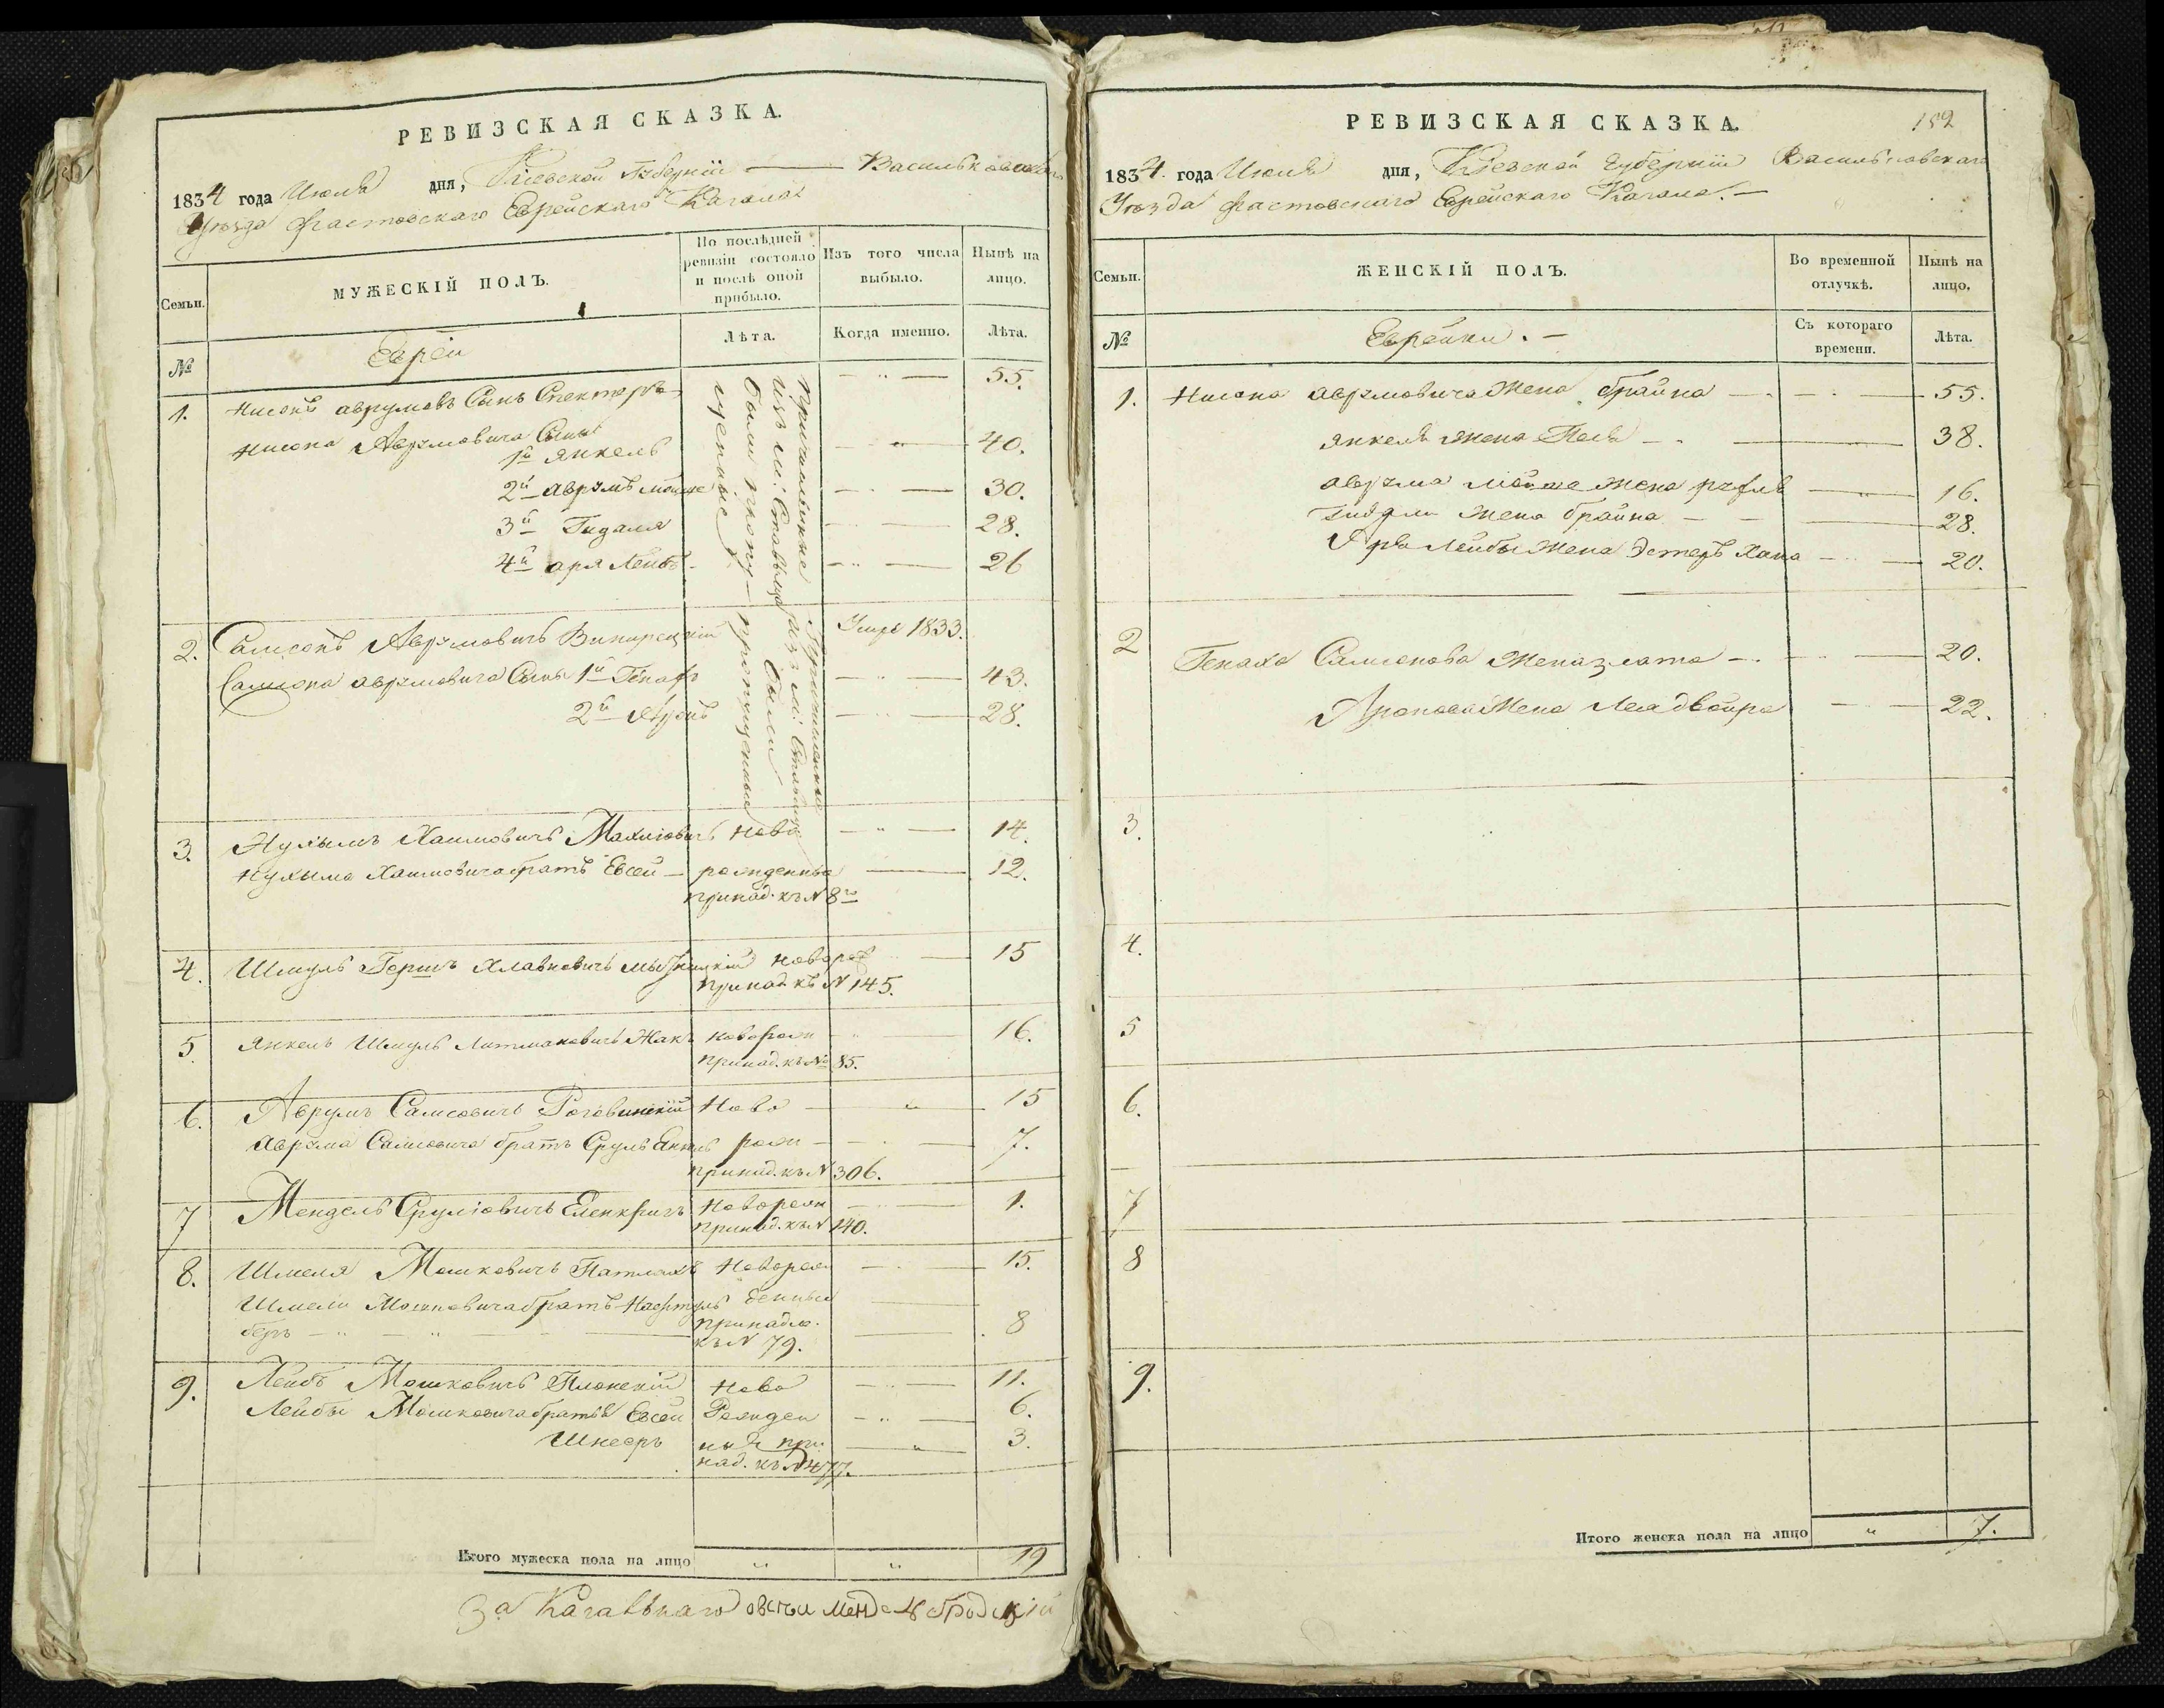 РЕВИЗСКАЯ СКАЗКА.
1834 года Июля дня, Кіевской Губерніи — Васильковскаго
Уѣзда Фастовскаго Еврейскаго Кагала
Семьи.
МУЖЕСКІЙ ПОЛЪ.
По послѣдней ревизіи состояло и послѣ оной прибыло.
Изъ того числа выбыло.
Нынѣ на лицо.
№
Евреи
Лѣта.
Когда именно.
Лѣта.
1. Нисонъ аврумовъ Сынъ Спекторъ — " — 55.
Нисона Аврумовича Сыны
1й Янкель — " — 40.
2й аврумъ мошке — " — 30.
3й Гидаля — 28.
4й аря Лейбъ — " — 26
Причисленные
изъ м: Ставища
были
пропущенные
2. Самсонъ Аврумовичъ Винирецкій Умре 1833.
Самсона аврумовича Сыны 1й Генахъ — " — 43.
2й Аронъ — " — 28.
Причисленные
изъ м:
были
пропущенные
3. Нухымъ Хаимовичъ Махліовичъ ново — " — 14.
Нухыма Хаимовича братъ Евсей — рожденные — 12.
принад. къ N 8й
4. Шмуль Гершъ Хлавновичъ новорож — 15
принад. къ N 145.
5. Янкель Шмуль Литмановичъ Жакъ новорож — " — 16.
принад. къ № 85.
6. Аврумъ Самсовичъ Роговинскій Ново — " — 15
аврума Самсовича братъ Сруль Янкель рож — 7.
принад. къ N 306.
7 Мендель Сруліовичъ Еленкригъ Новорожд — 1.
принад. къ N 140.
8. Шмеля Мошковичъ Патлахъ Новорож — 15.
Шмели Мошковича братъ Нафтуль денные
беръ — " — " — принадл. — 8
къ N 79.
9. Лейбъ Мошковичъ Плонскій Ново — 11.
Лейбы Мошковича братья Евсей Рожден — " — 6.
Шнееръ ныя при — " — 3.
над. къ N 477.
Итого мужеска пола на лицо " " 19
За Кагальнаго мендель бродскій
РЕВИЗСКАЯ СКАЗКА. 152
1834. года Июля дня, Кіевской губерніи Васильковскаго
Уѣзда Фастовскаго Еврейскаго Кагала. —
Семьи.
ЖЕНСКІЙ ПОЛЪ.
Во временной отлучкѣ.
Нынѣ на лицо.
№
Еврейки. —
Съ котораго времени.
Лѣта.
1. Нисона аврумовича Жена брайна — 55.
Янкеля жена Песя — 38.
аврума мошке жена рухля — " — 16.
Гидали жена брайна — 28.
Аря Лейбы Жена Эстеръ Хана — 20.
2 Генаха Самсонова Жена злата — 20.
Аронова Жена Лея двойра — 22.
3.
4.
5
6.
7
8
9.
Итого женска пола на лицо " 7.